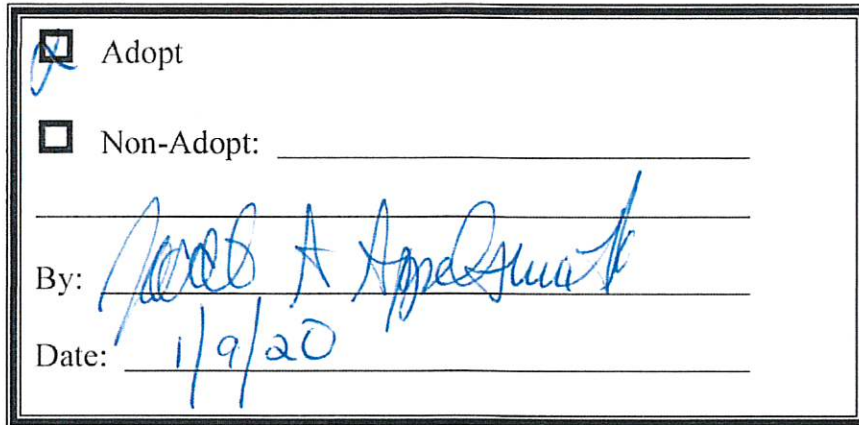 Adopt
Non-Adopt:
By: Jacob A Appelsmith
Date: 1/9/20